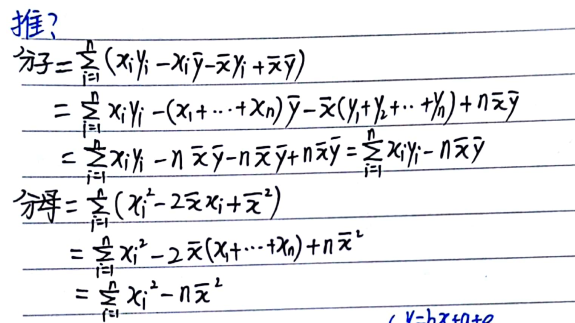 推?
分子=∑_{i=1}^{n}(x_i y_i - x_i ȳ - x̄ y_i + x̄ ȳ)
=∑_{i=1}^{n} x_i y_i - (x_1+⋯+x_n) ȳ - x̄ (y_1+y_2+⋯+y_n) + n x̄ ȳ
=∑_{i=1}^{n} x_i y_i - n x̄ ȳ - n x̄ ȳ + n x̄ ȳ = ∑_{i=1}^{n} x_i y_i - n x̄ ȳ
分母=∑_{i=1}^{n}(x_i² - 2 x̄ x_i + x̄²)
=∑_{i=1}^{n} x_i² - 2 x̄ (x_1+⋯+x_n) + n x̄²
=∑_{i=1}^{n} x_i² - n x̄²